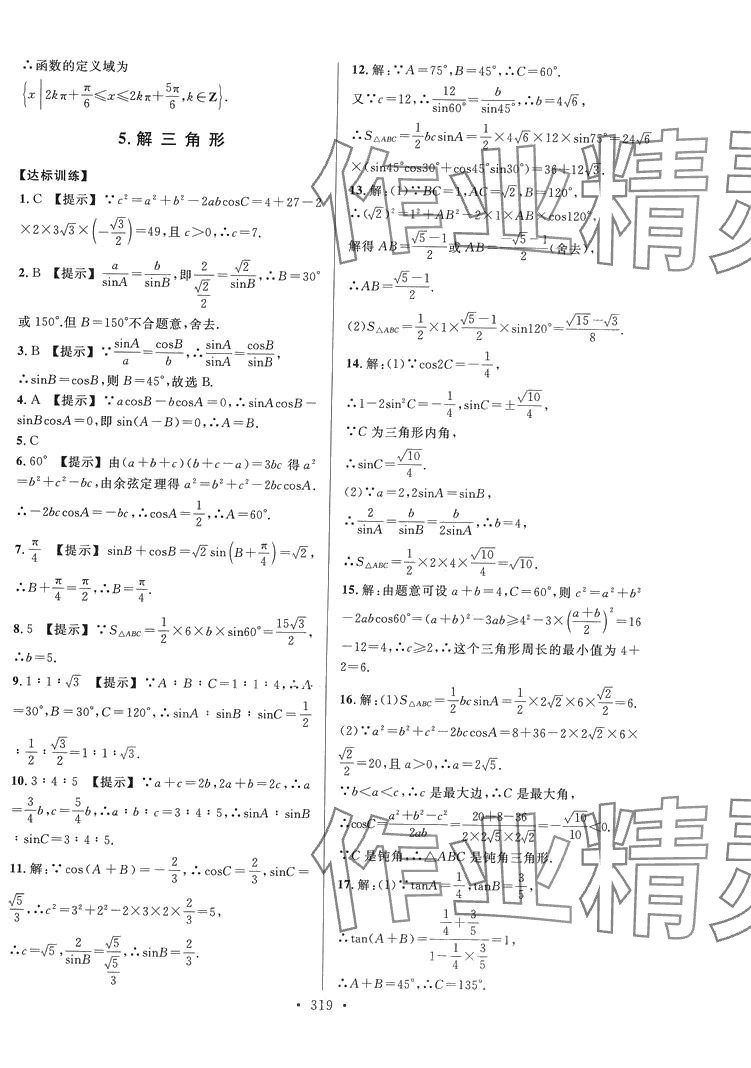 ∴函数的定义域为
{x | 2kπ+π/6≤x≤2kπ+5π/6,k∈Z}.
5.解 三 角 形
【达标训练】
1.C 【提示】∵c²=a²+b²-2abcosC=4+27-2
×2×3√3×(-√3/2)=49,且c>0,∴c=7.
2.B 【提示】a/sinA=b/sinB,即2/(√2/2)=√2/sinB,∴B=30°
或150°.但B=150°不合题意,舍去.
3.B 【提示】∵sinA/a=cosB/b,∴sinA/sinA=cosB/sinB,
∴sinB=cosB,则B=45°,故选B.
4.A 【提示】∵acosB-bcosA=0,∴sinAcosB-
sinBcosA=0,即sin(A-B)=0,∴A=B.
5.C
6.60° 【提示】由(a+b+c)(b+c-a)=3bc得a²
=b²+c²-bc,由余弦定理得a²=b²+c²-2bccosA.
∴-2bccosA=-bc,∴cosA=1/2,∴A=60°.
7.π/4 【提示】sinB+cosB=√2sin(B+π/4)=√2,
∴B+π/4=π/2,∴B=π/4.
8.5 【提示】∵S△ABC=1/2×6×b×sin60°=15√3/2,
∴b=5.
9.1∶1∶√3 【提示】∵A∶B∶C=1∶1∶4,∴A
=30°,B=30°,C=120°,∴sinA∶sinB∶sinC=1/2
∶1/2∶√3/2=1∶1∶√3.
10.3∶4∶5 【提示】∵a+c=2b,2a+b=2c,∴a
=3/4b,c=5/4b,∴a∶b∶c=3∶4∶5,∴sinA∶sinB
∶sinC=3∶4∶5.
11.解:∵cos(A+B)=-2/3,∴cosC=2/3,sinC=
√5/3,∴c²=3²+2²-2×3×2×2/3=5,
∴c=√5,2/sinB=√5/(√5/3),∴sinB=2/3.
12.解:∵A=75°,B=45°,∴C=60°.
又∵c=12,∴12/sin60°=b/sin45°,∴b=4√6,
∴S△ABC=1/2bcsinA=1/2×4√6×12×sin75°=24√6
×(sin45°cos30°+cos45°sin30°)=36+12√3.
13.解:(1)∵BC=1,AC=√2,B=120°,
∴(√2)²=1²+AB²-2×1×AB×cos120°,
解得AB=(√5-1)/2或AB=(-√5-1)/2(舍去),
∴AB=(√5-1)/2.
(2)S△ABC=1/2×1×(√5-1)/2×sin120°=(√15-√3)/8.
14.解:(1)∵cos2C=-1/4,
∴1-2sin²C=-1/4,sinC=±√10/4,
∵C为三角形内角,
∴sinC=√10/4.
(2)∵a=2,2sinA=sinB,
∴2/sinA=b/sinB=b/2sinA,∴b=4,
∴S△ABC=1/2×2×4×√10/4=√10.
15.解:由题意可设a+b=4,C=60°,则c²=a²+b²
-2abcos60°=(a+b)²-3ab≥4²-3×((a+b)/2)²=16
-12=4,∴c≥2,∴这个三角形周长的最小值为4+
2=6.
16.解:(1)S△ABC=1/2bcsinA=1/2×2√2×6×√2/2=6.
(2)∵a²=b²+c²-2bccosA=8+36-2×2√2×6×
√2/2=20,且a>0,∴a=2√5.
∵b<a<c,∴c是最大边,∴C是最大角,
∴cosC=(a²+b²-c²)/2ab=(20+8-36)/(2×2√5×2√2)=-√10/10<0.
∵C是钝角,∴△ABC是钝角三角形.
17.解:(1)∵tanA=1/4,tanB=3/5,
∴tan(A+B)=(1/4+3/5)/(1-1/4×3/5)=1,
∴A+B=45°,∴C=135°.
· 319 ·
作业精灵
作业精灵